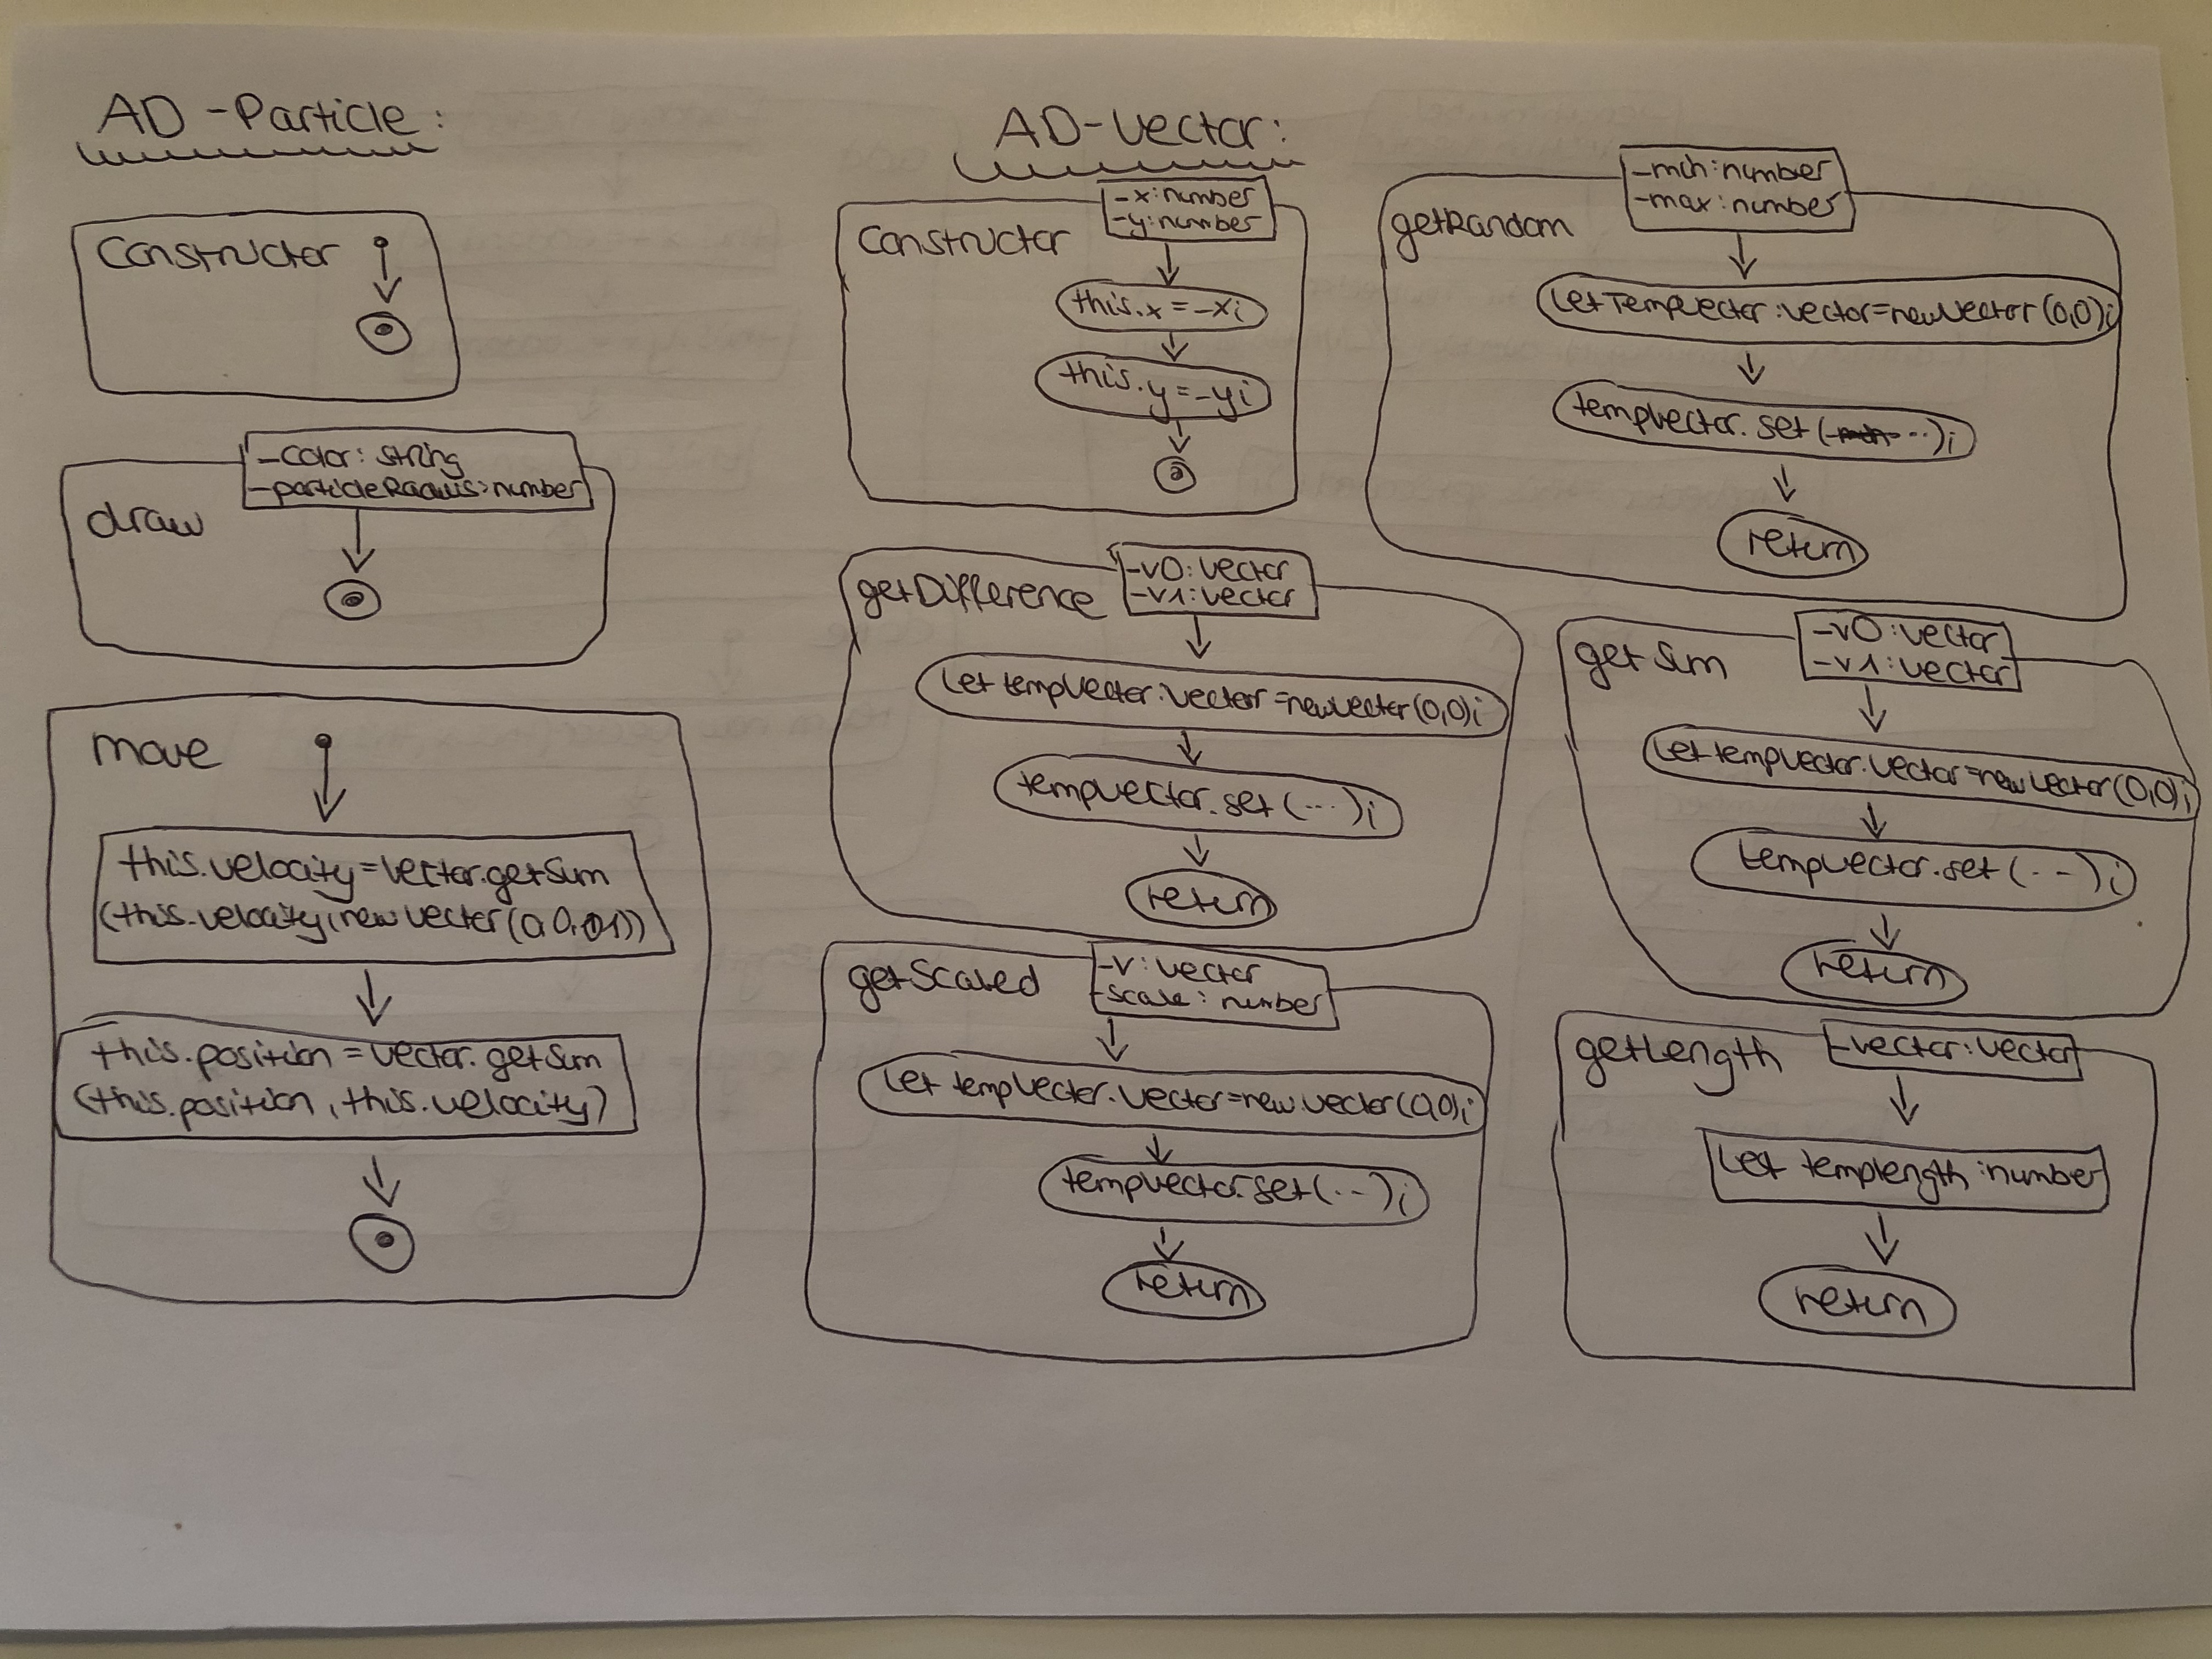 AD-Particle:
Constructor
draw
-color: string
-particleRadius: number
move
this.velocity = Vector.getSum
(this.velocity, new Vector(0,0,01))
this.position = Vector.getSum
(this.position, this.velocity)
AD-Vector:
Constructor
-x: number
-y: number
this.x = -x;
this.y = -y;
getDifference
-v0: vector
-v1: vector
Let tempvector: Vector = new Vector(0,0);
tempvector.set(...);
return
getScaled
-v: vector
-scale: number
Let tempvector: vector = new vector(0,0);
tempvector.set(..);
return
getRandom
-min: number
-max: number
Let Tempvector: vector = new Vector(0,0);
tempvector.set(...);
return
getSum
-v0: vector
-v1: vector
Let tempvector: vector = new Vector(0,0);
tempvector.set(..);
return
getLength
-vector: vector
Let templength: number
return